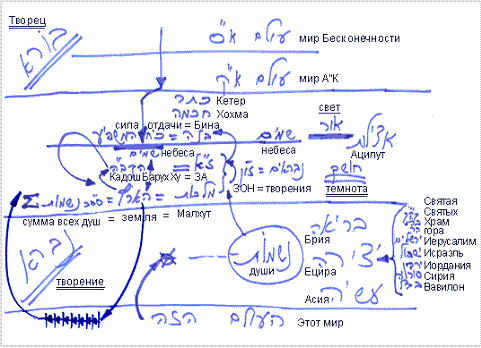 Творец
בורא
עולם א"ס мир Бесконечности
עולם א"ק мир А"К
כתר Кетер
חכמה Хохма
свет
אור
אצילות
Ацилут
сила отдачи = Бина
בינה = כח המשפיע
שמים
небеса
שמים
небеса
ז"א = הקב"ה
Кадош Барух Ху = ЗА
נבראים = זו"ן
ЗОН = творения
חושך
темнота
מלכות = הארץ = סה"כ נשמות = Σ
сумма всех душ = земля = Малхут
ברא
творение
נשמות
души
בריאה
Брия
יצירה
Ецира
עשיה
Асия
Святая
Святых
Храм
гора
Иерусалим
Исраэль
Иордания
Сирия
Вавилон
העולם הזה Этот мир